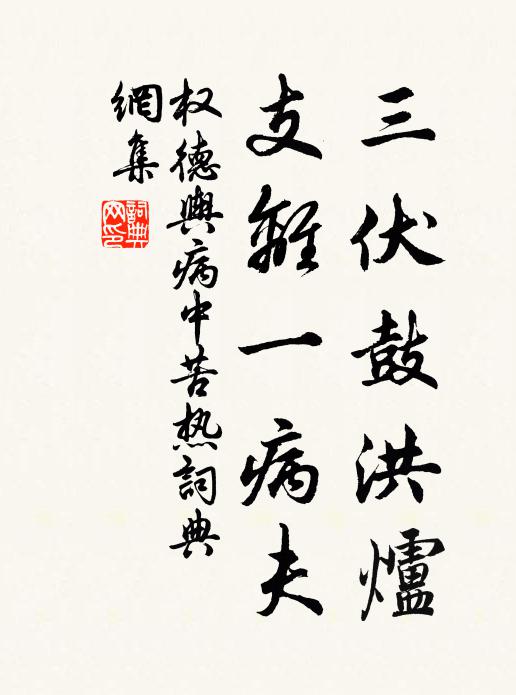 三伏鼓洪爐
支離一病夫
权德輿病中苦热詞典
網集
詞典
网印